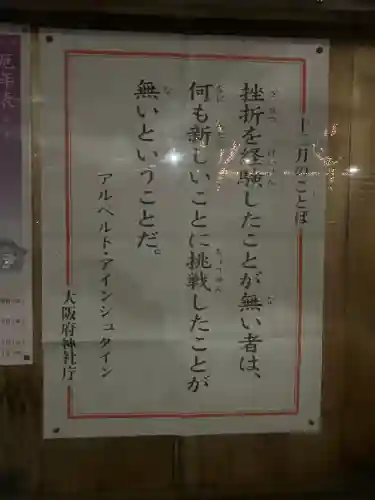 十二月のことば
挫折を経験したことが無い者は、
何も新しいことに挑戦したことが
無いということだ。
アルベルト・アインシュタイン
大阪府神社庁
厄年表